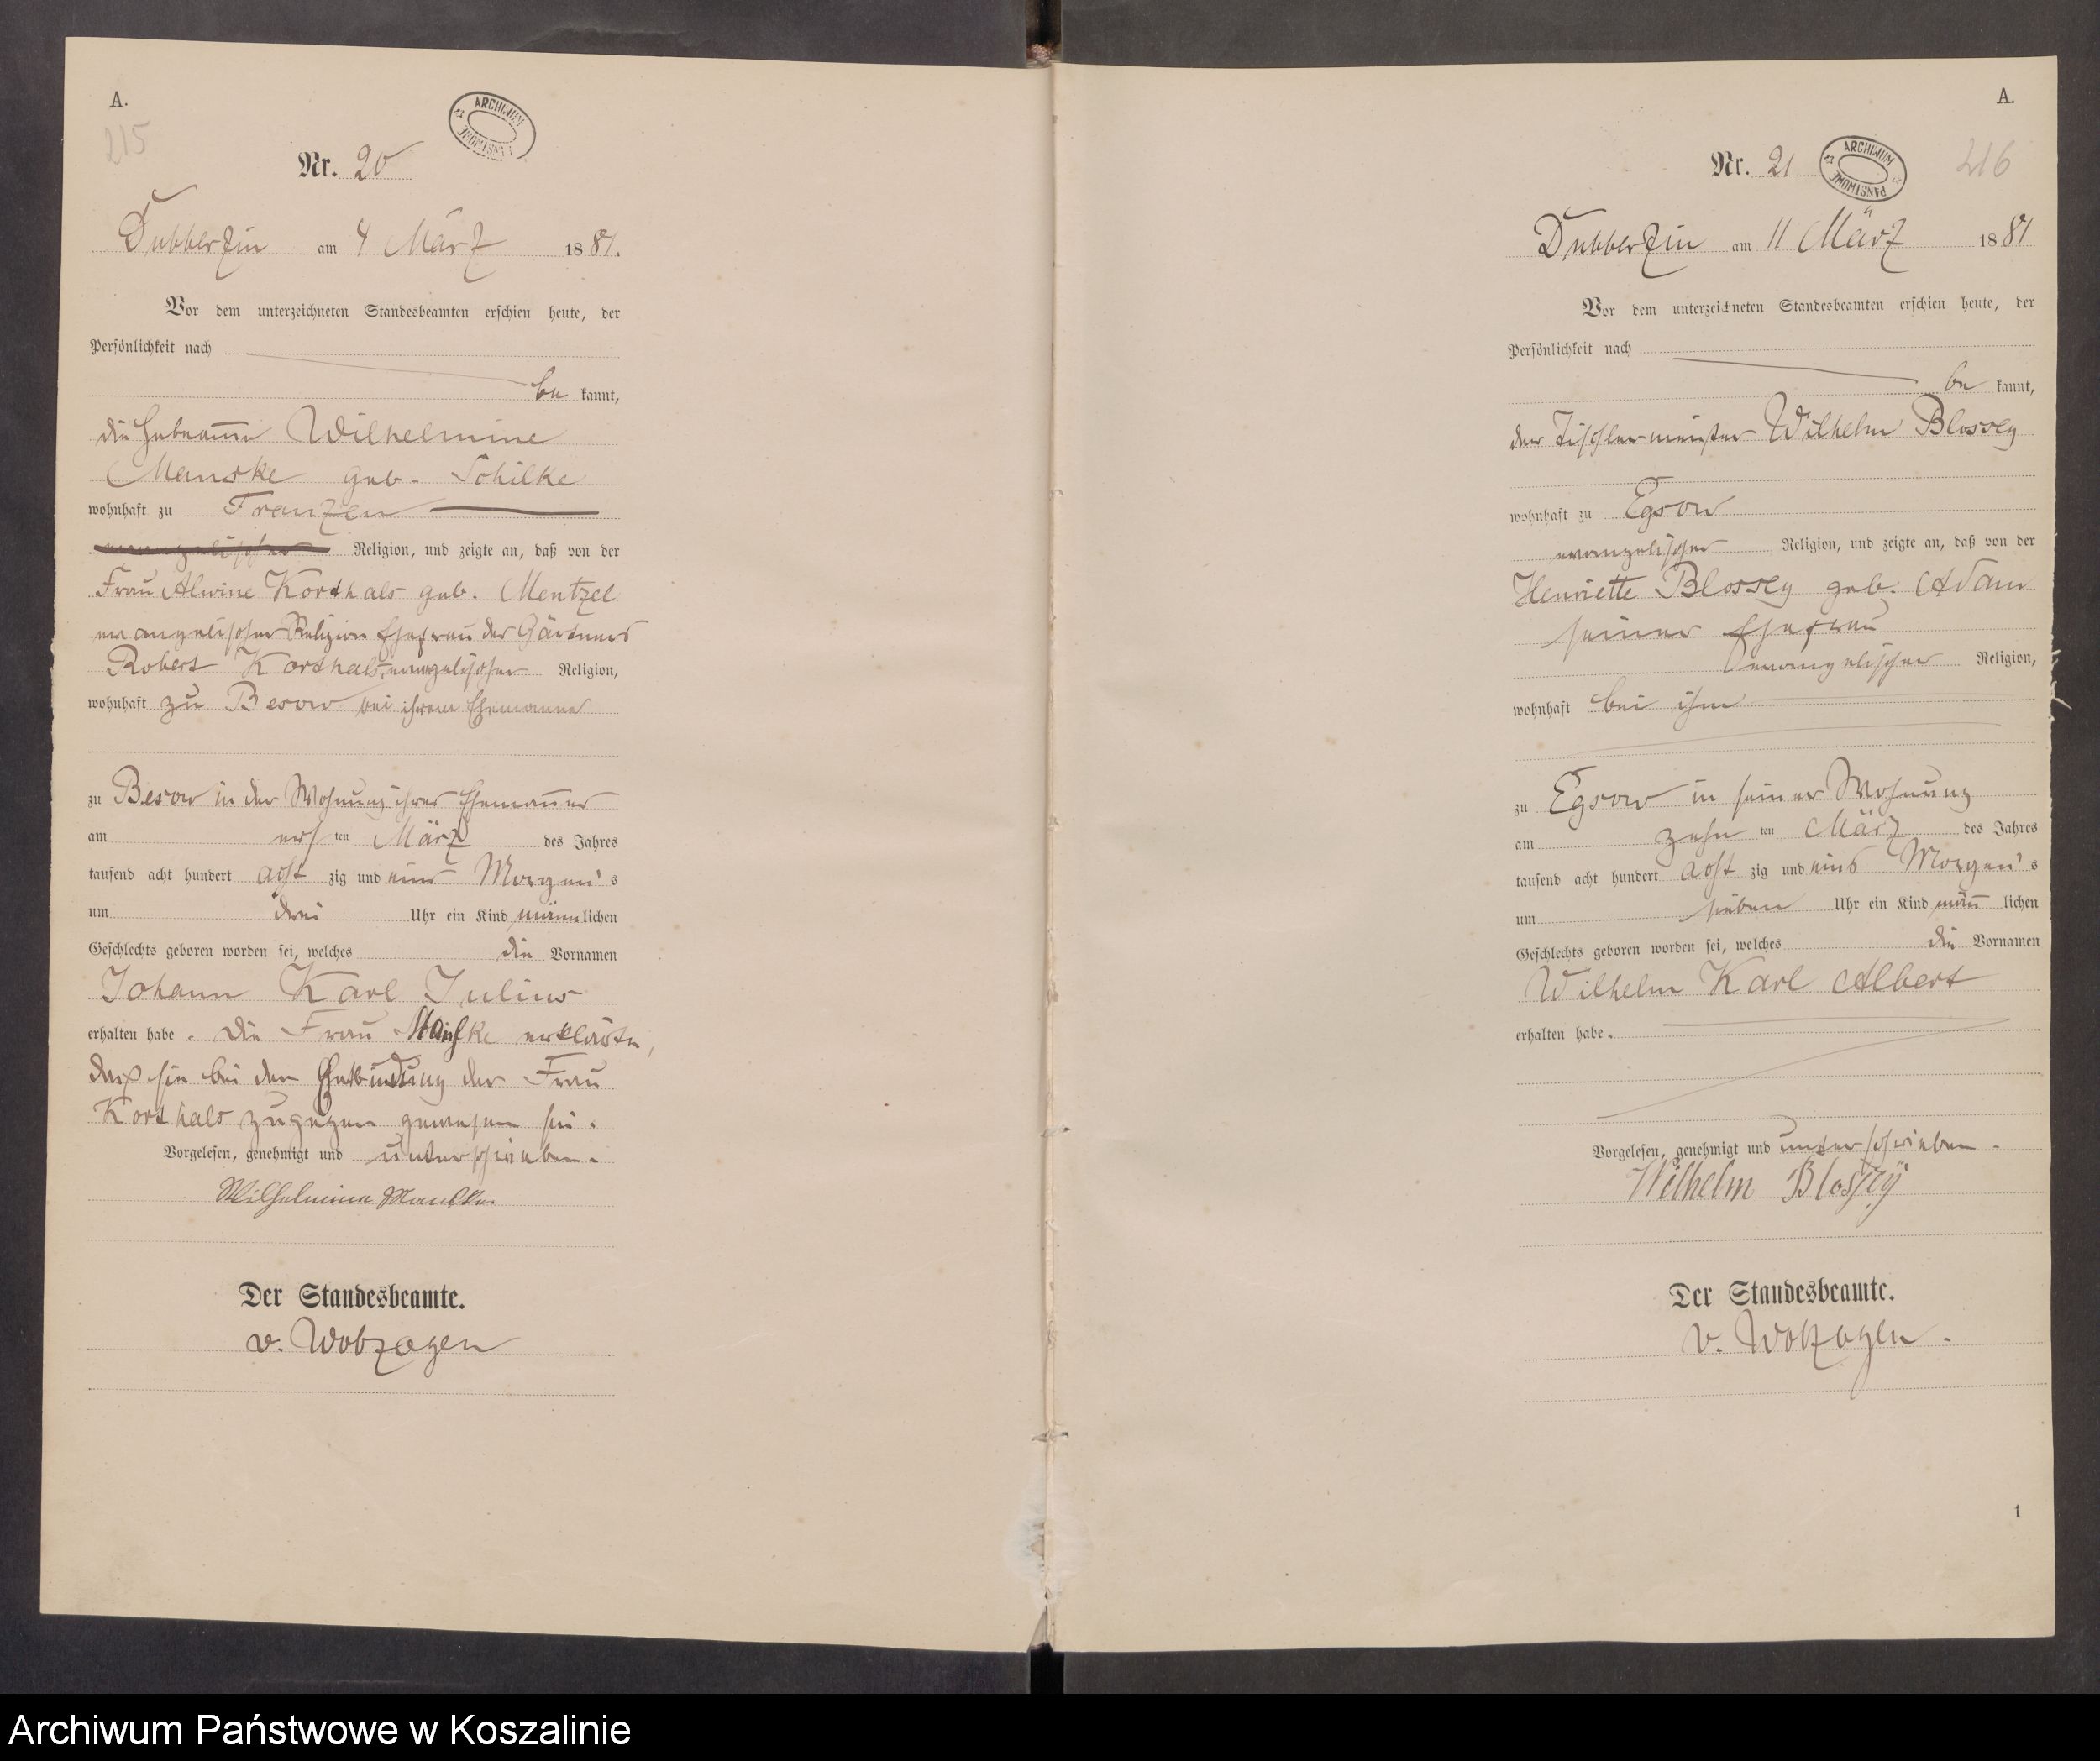 A.
215
ARCHIWUM PAŃSTWOWE
Nr. 20
Dubberzin am 4 März 1881.
Vor dem unterzeichneten Standesbeamten erschien heute, der
Persönlichkeit nach
be kannt,
die Hebeamme Wilhelmine
Manske geb. Schilke
wohnhaft zu Franzen
evangelischer Religion, und zeigte an, daß von der
Frau Alwine Korthals geb. Mentzel
evangelischer Religion Ehefrau des Gärtners
Robert Korthals, evangelischer Religion,
wohnhaft zu Besow bei ihrem Ehemanne
zu Besow in der Wohnung ihres Ehemannes
am ers ten März des Jahres
tausend acht hundert acht zig und eins Morgen's
um drei Uhr ein Kind männlichen
Geschlechts geboren worden sei, welches die Vornamen
Johann Karl Julius
erhalten habe. Die Frau Manske erklärte,
daß sie bei der Entbindung der Frau
Korthals zugegen gewesen sei.
Vorgelesen, genehmigt und unterschrieben.
Wilhelmine Manske.
Der Standesbeamte.
v. Wolzogen
A.
216
Nr. 21
ARCHIWUM PAŃSTWOWE
Dubberzin am 11 März 1881
Vor dem unterzeichneten Standesbeamten erschien heute, der
Persönlichkeit nach
be kannt,
der Tischlermeister Wilhelm Blossey
wohnhaft zu Egsow
evangelischer Religion, und zeigte an, daß von der
Henriette Blossey geb. Adam
seiner Ehefrau
evangelischer Religion,
wohnhaft bei ihm
zu Egsow in seiner Wohnung
am zehn ten März des Jahres
tausend acht hundert acht zig und eins Morgen's
um sieben Uhr ein Kind männ lichen
Geschlechts geboren worden sei, welches die Vornamen
Wilhelm Karl Albert
erhalten habe.
Vorgelesen, genehmigt und unterschrieben.
Wilhelm Blossey
Der Standesbeamte.
v. Wolzogen.
1
Archiwum Państwowe w Koszalinie